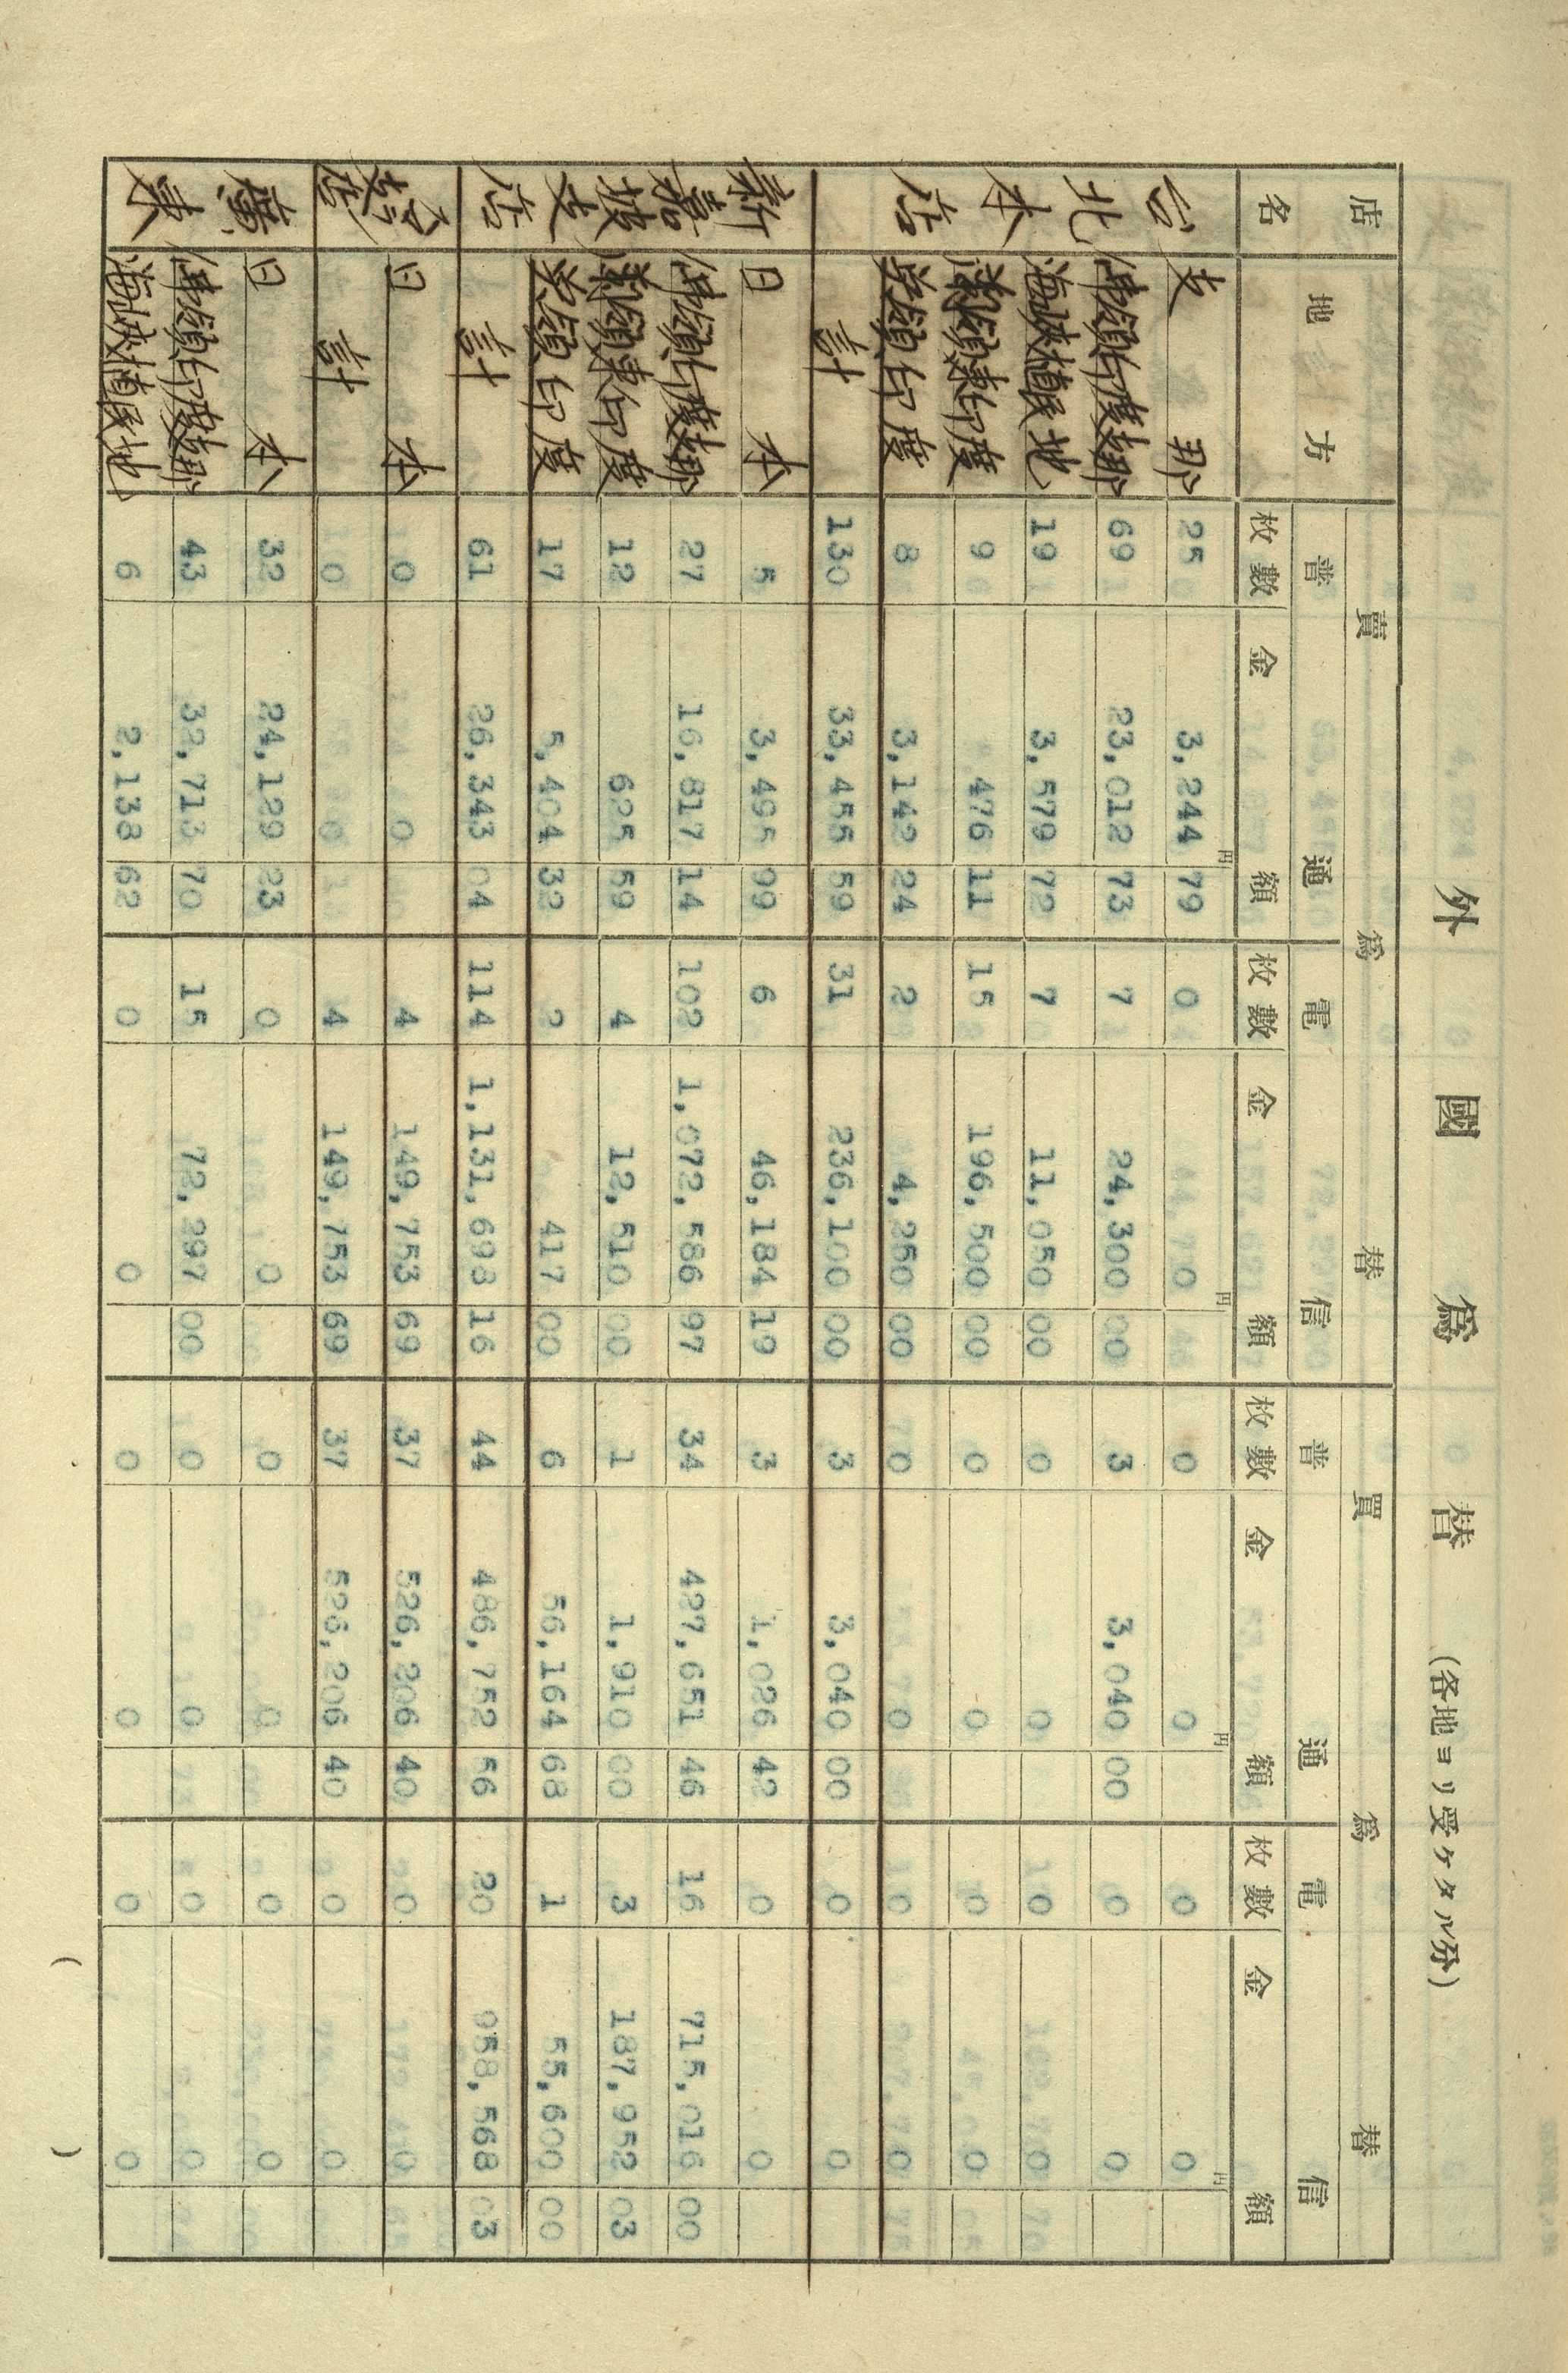 外國爲替 (各地ヨリ受ケタル分)
店名 地方 賣爲替 買爲替
普通 電信 普通 電信
枚數 金額 枚數 金額 枚數 金額 枚數 金額
円 円 円 円
台北本店 支那 25 3,244 79 0 0 0 0 0 0
佛領印度支那 69 23,012 73 7 24,300 00 3 3,040 00 0 0
海峽植民地 19 3,579 72 7 11,050 00 0 0 0 0
蘭領東印度 9 476 11 15 196,500 00 0 0 0 0
英領印度 8 3,142 24 2 4,250 00 0 0 0 0
計 130 33,455 59 31 236,100 00 3 3,040 00 0 0
新嘉坡支店 日本 5 3,495 99 6 46,184 19 3 1,026 42 0 0
佛領印度支那 27 16,817 14 102 1,072,586 97 34 427,651 46 16 715,016 00
蘭領東印度 12 625 59 4 12,510 00 1 1,910 00 3 187,952 03
英領印度 17 5,404 32 2 417 00 6 56,164 68 1 55,600 00
計 61 26,343 04 114 1,131,698 16 44 486,752 56 20 958,568 03
日本 0 0 4 149,753 69 37 526,206 40 0 0
計 0 0 4 149,753 69 37 526,206 40 0 0
廣東 日本 32 24,129 23 0 0 0 0 0 0
佛領印度支那 43 32,713 70 15 72,297 00 0 0 0 0
海峽植民地 6 2,138 62 0 0 0 0 0 0
( )